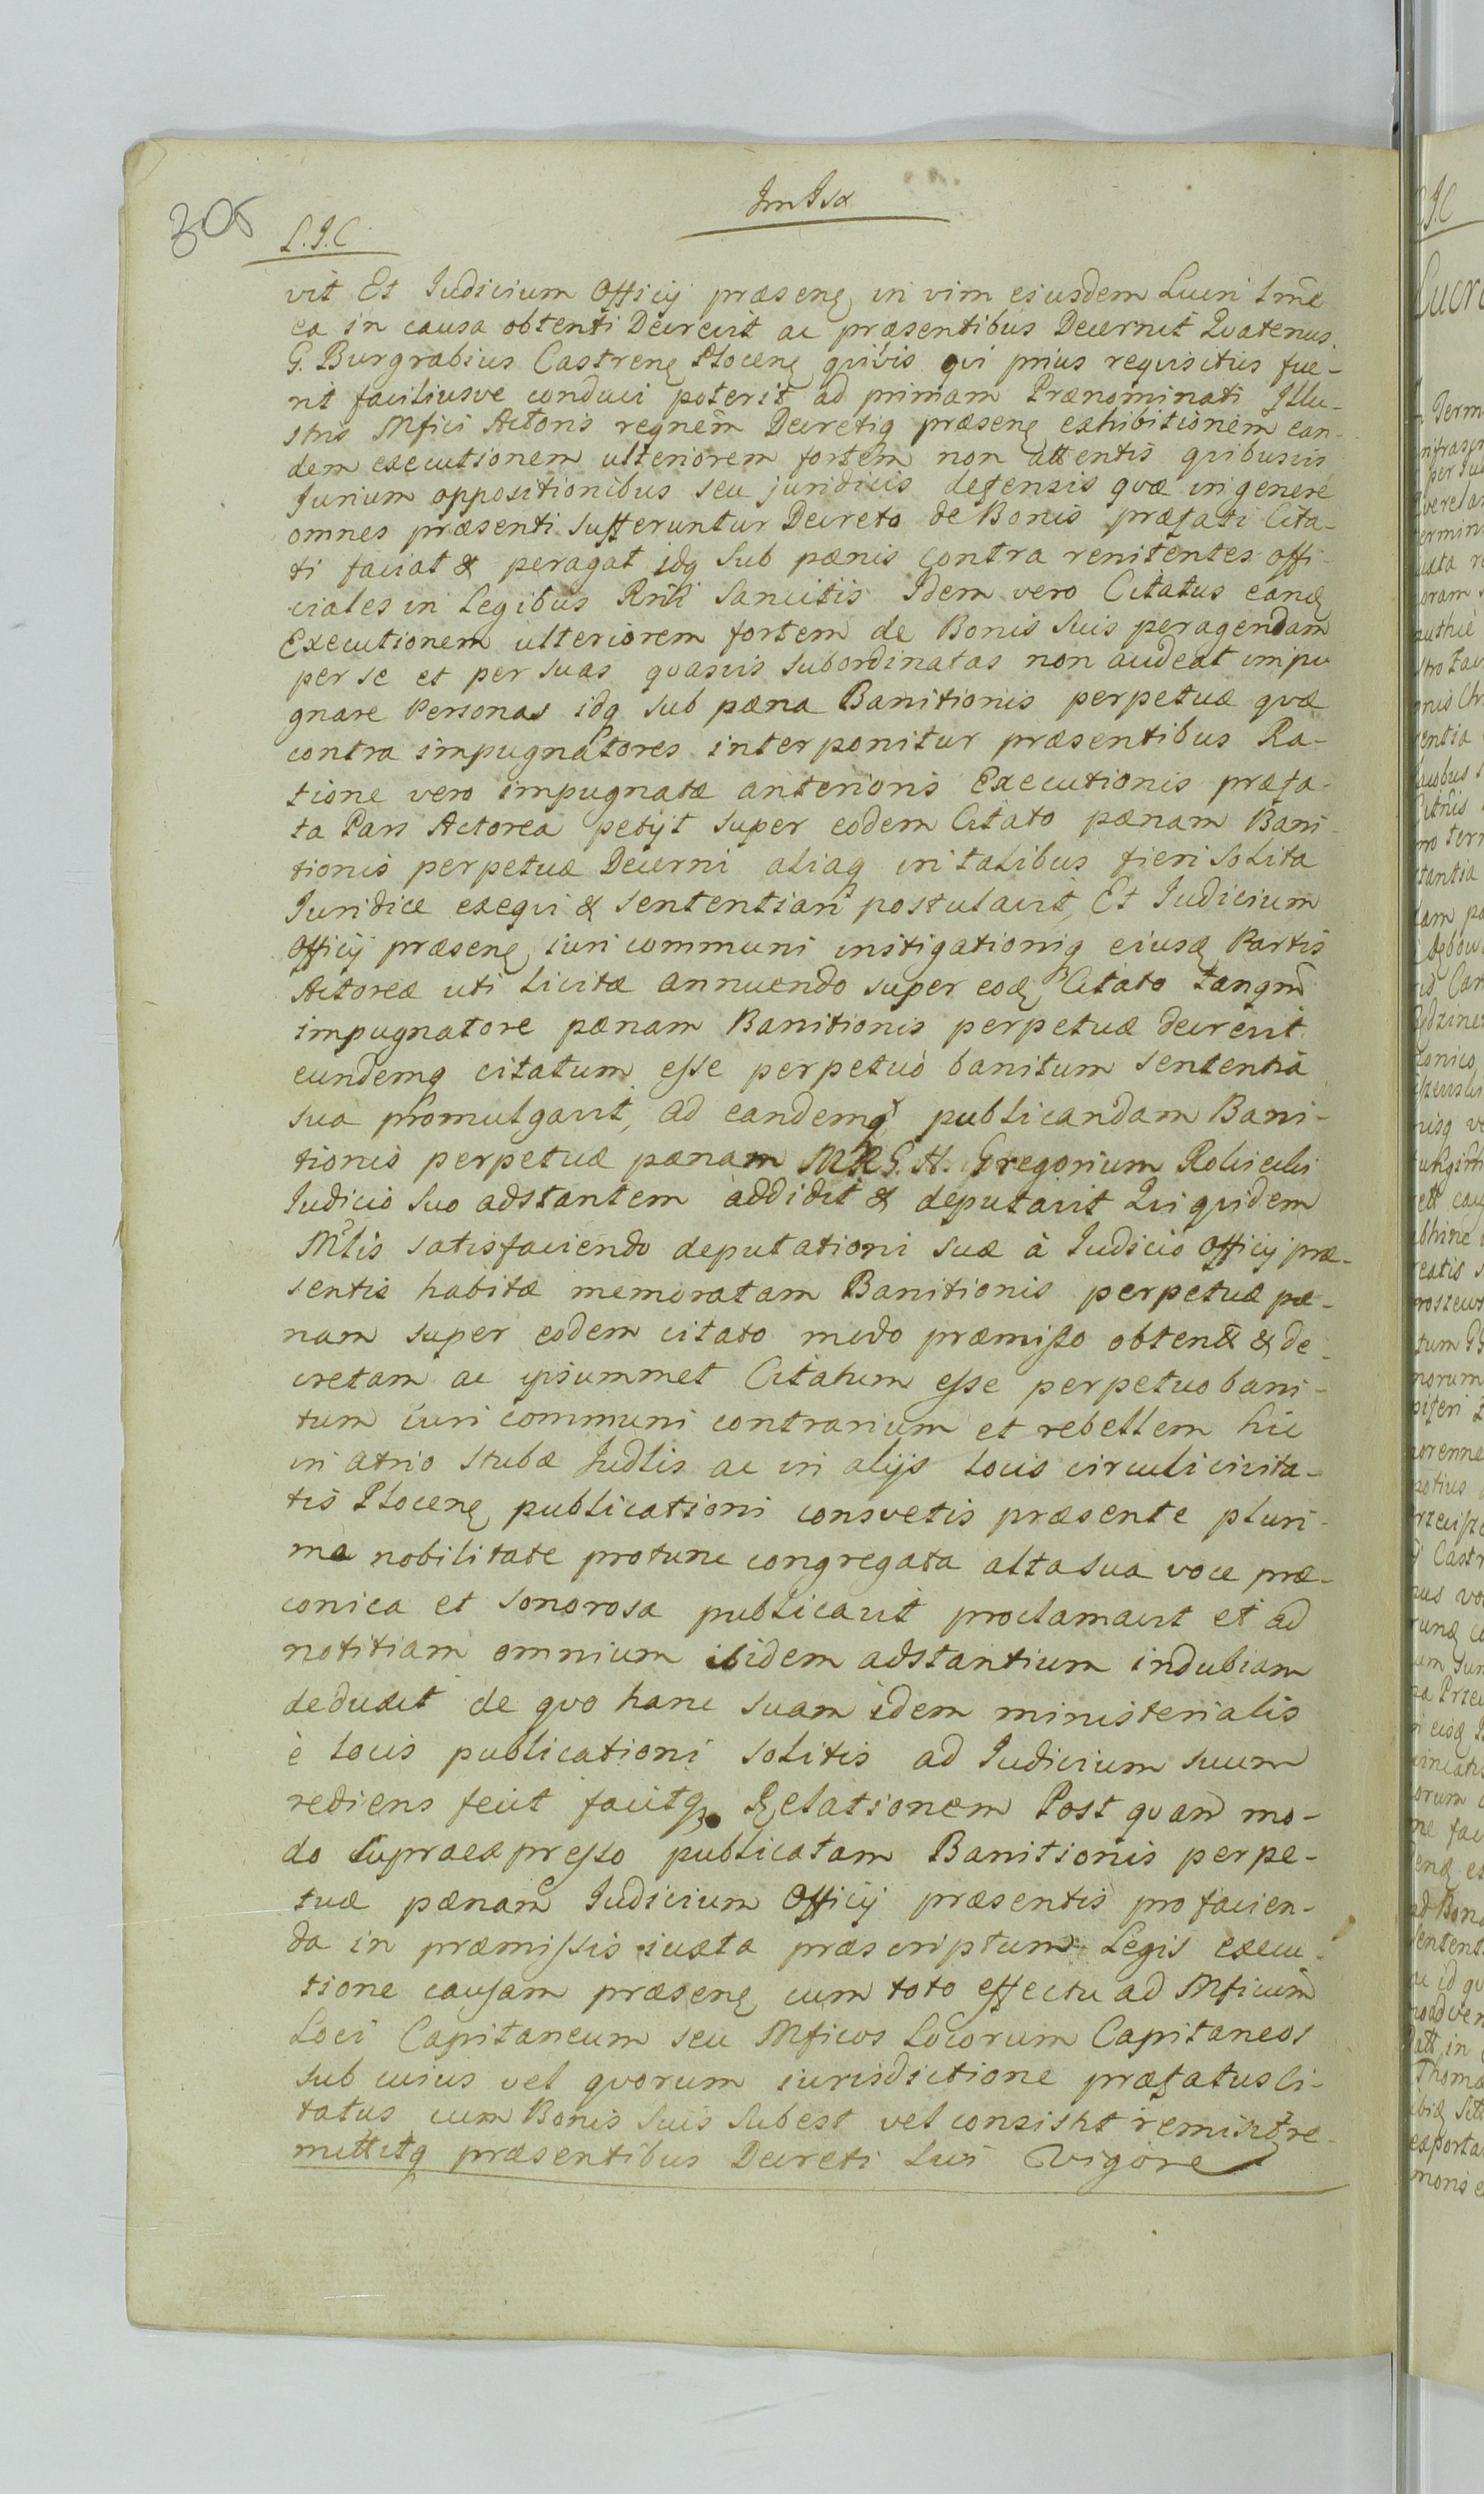 305
L.I.C
vit Et Iudicium Officij præsens in vim eiusdem Lucri Sme
ea in causa obtenti Decrevit ac præsentibus Decernit Qvatenus
G. Burgrabius Castrens Plocens qvivis qvi prius reqvisitus fue-
rit faciliusve conduci poterit ad primam Prænominati Illu-
stris Mfici Actoris reqnem Decretiq præsens exhibitionem ean-
dem executionem ulteriorem fortem non attentis qvibusvis
Iurium oppositionibus seu juridicis defensis qvæ in genere
omnes præsenti sufferuntur Decreto de Bonis præfati Cita-
ti faciat & peragat idq sub pænis contra renitentes offi-
ciales in Legibus Rni Sancitis Idem vero Citatus eand
Executionem ulteriorem fortem de Bonis suis peragendam
per se et per suas qvasvis subordinatas non audeat impu
gnare Personas idq sub pæna Banitionis perpetuæ qvæ
contra impugnatores interponitur præsentibus Ra-
tione vero impugnatæ anterioris Executionis præfa-
ta Pars Actorea petijt super eodem Citato pænam Bani-
tionis perpetuæ Decerni aliaq in talibus fieri solita
Iuridice exeqvi & sententiari postulavit, Et Iudicium
Officij præsens iuri communi instigationiq eiusd Partis
Actoreæ uti licitæ annuendo super eod Citato tanqm
impugnatore pænam Banitionis perpetuæ decrevit
eundemq citatum esse perpetuò banitum sententià
sua promulgavit, ad eandemq publicandam Bani-
tionis perpetuæ pænam MRG. H. Gregorium
Iudicio suo adstantem addidit & deputavit Qvi qvidem
Mlis satisfaciendo deputationi suæ à Iudicio Officij præ-
sentis habitæ memoratam Banitionis perpetuæ pæ-
nam super eodem citato modo præmisso obtent & de-
cretam ac ipsummet Citatum esse perpetuo bani-
tum iuri communi contrarium et rebellem hic
in atrio stubæ Iudlis ac in alijs locis circuli civita-
tis Plocens publicationi consvetis præsente pluri-
ma nobilitate protunc congregata alta sua voce præ-
conica et sonorosa publicavit proclamavit et ad
notitiam omnium ibidem adstantium indubiam
deduxit de qvo hanc suam idem ministerialis
è locis publicationi solitis ad Iudicium suum
rediens fecit facitq Relationem Post qvam mo-
do supraexpresso publicatam Banitionis perpe-
tuæ pænam Iudicium Officij præsentis pro facien-
da in præmissis iuxta præscriptum Legis execu-
tione causam præsens cum toto effectu ad Mficum
Loci Capitaneum seu Mficos Locorum Capitaneos
sub cuius vel qvorum iurisdictione præfatus Ci-
tatus cum Bonis suis subest vel consistit remisit re-
mittitq præsentibus Decreti sui vigore